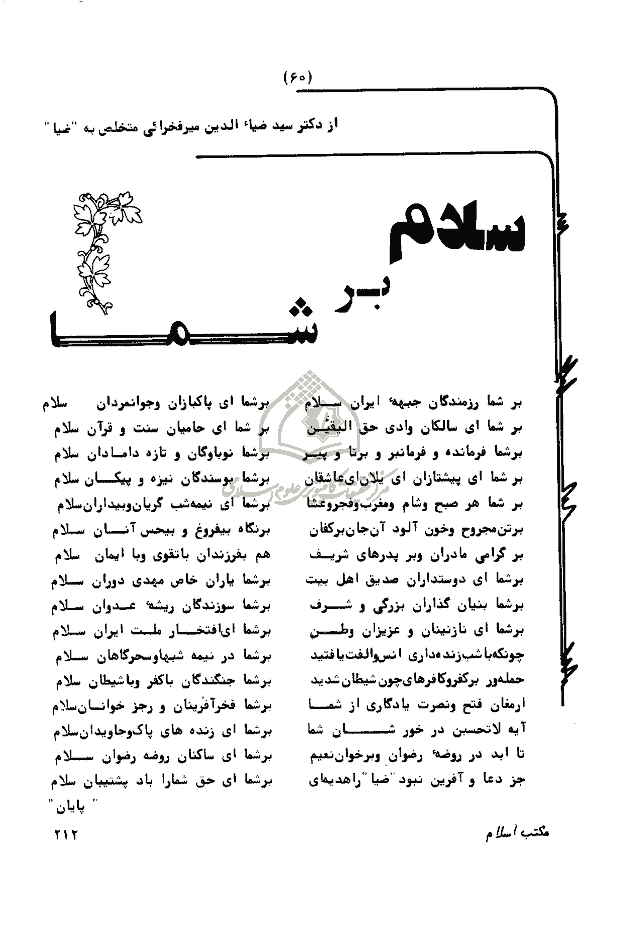 (۶۰)
از دکتر سید ضیاء الدین میرفخرائی متخلص به "ضیا"
سلام
بر
شما
بر شما رزمندگان جبههٔ ایران سلام برشما ای پاکبازان وجوانمردان سلام
بر شما ای سالکان وادی حق الیقین بر شما ای حامیان سنت و قرآن سلام
برشما فرمانده و فرمانبر و برنا و پیر برشما نوباوگان و تازه دامادان سلام
بر شما ای پیشتازان ای یلان‌ای‌عاشقان برشما بوسندگان نیزه و پیکان سلام
بر شما هر صبح وشام ومغرب‌وفجروعشا برشما ای نیمه‌شب گریان‌وبیداران‌سلام
برتن‌مجروح وخون آلود آن‌جان‌برکفان برنگاه بیفروغ و بیحس آنان سلام
بر گرامی مادران وبر پدرهای شریف هم بفرزندان باتقوی وبا ایمان سلام
برشما ای دوستداران صدیق اهل بیت برشما یاران خاص مهدی دوران سلام
برشما بنیان گذاران بزرگی و شرف برشما سوزندگان ریشهٔ عدوان سلام
برشما ای نازنینان و عزیزان وطن برشما ای‌افتخار ملت ایران سلام
چونکه‌باشب‌زنده‌داری انس‌والفت‌یافتید برشما در نیمه شبهاوسحرگاهان سلام
حمله‌ور برکفروکافرهای‌چون‌شیطان‌شدید برشما جنگندگان باکفر وباشیطان سلام
ارمغان فتح ونصرت یادگاری از شما برشما فخرآفرینان و رجز خوانان‌سلام
آیه لاتحسبن در خور شان شما برشما ای زنده های پاک‌وجاویدان‌سلام
تا ابد در روضهٔ رضوان وبرخوان‌نعیم برشما ای ساکنان روضه رضوان سلام
جز دعا و آفرین نبود "ضیا" راهدیه‌ای برشما ای حق شمارا باد پشتیبان سلام
"پایان"
مکتب اسلام
۲۱۲